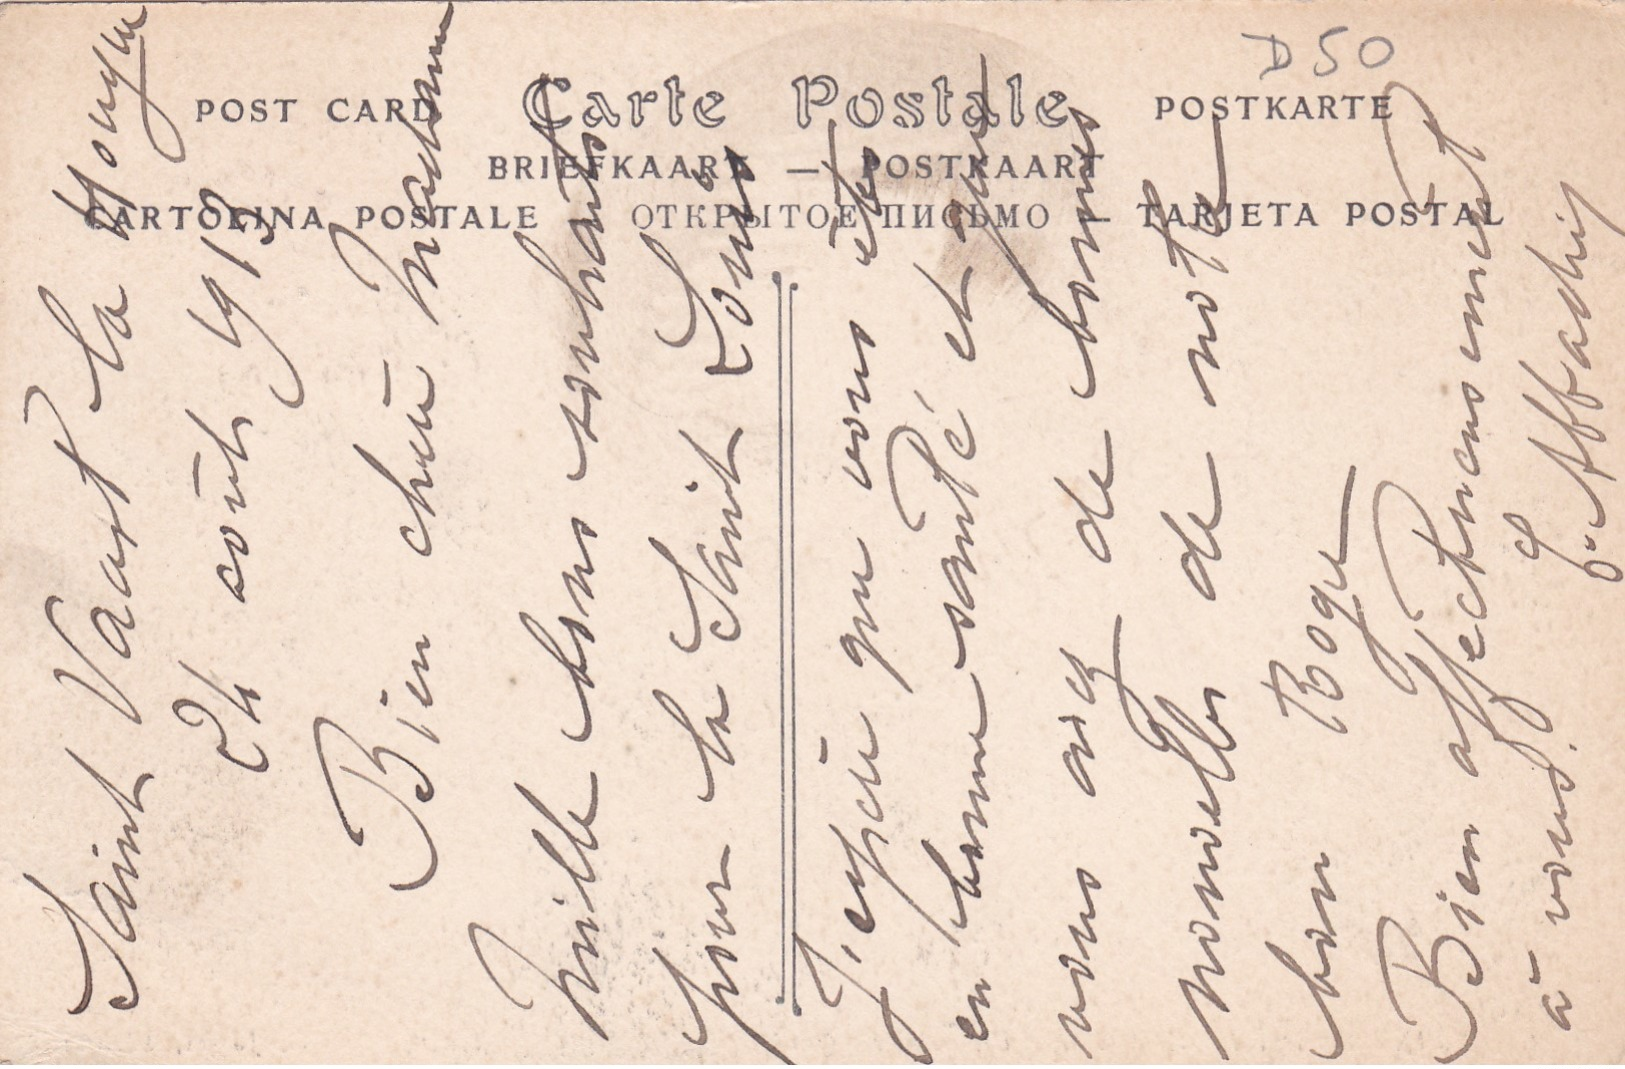 D 50
POST CARD Carte Postale POSTKARTE
BRIEFKAART — POSTKAART
CARTOLINA POSTALE ОТКРЫТОЕ ПИСЬМО — TARJETA POSTAL
Saint Vaast la Hougue
24 août 1913
Bien chère Madame
Mille bons souhaits
pour la Saint Louis
J'espère que vous êtes
en bonne santé et que
vous aiez de bonnes
nouvelles de notre
bon Roger
Bien affectueusement
à vous.